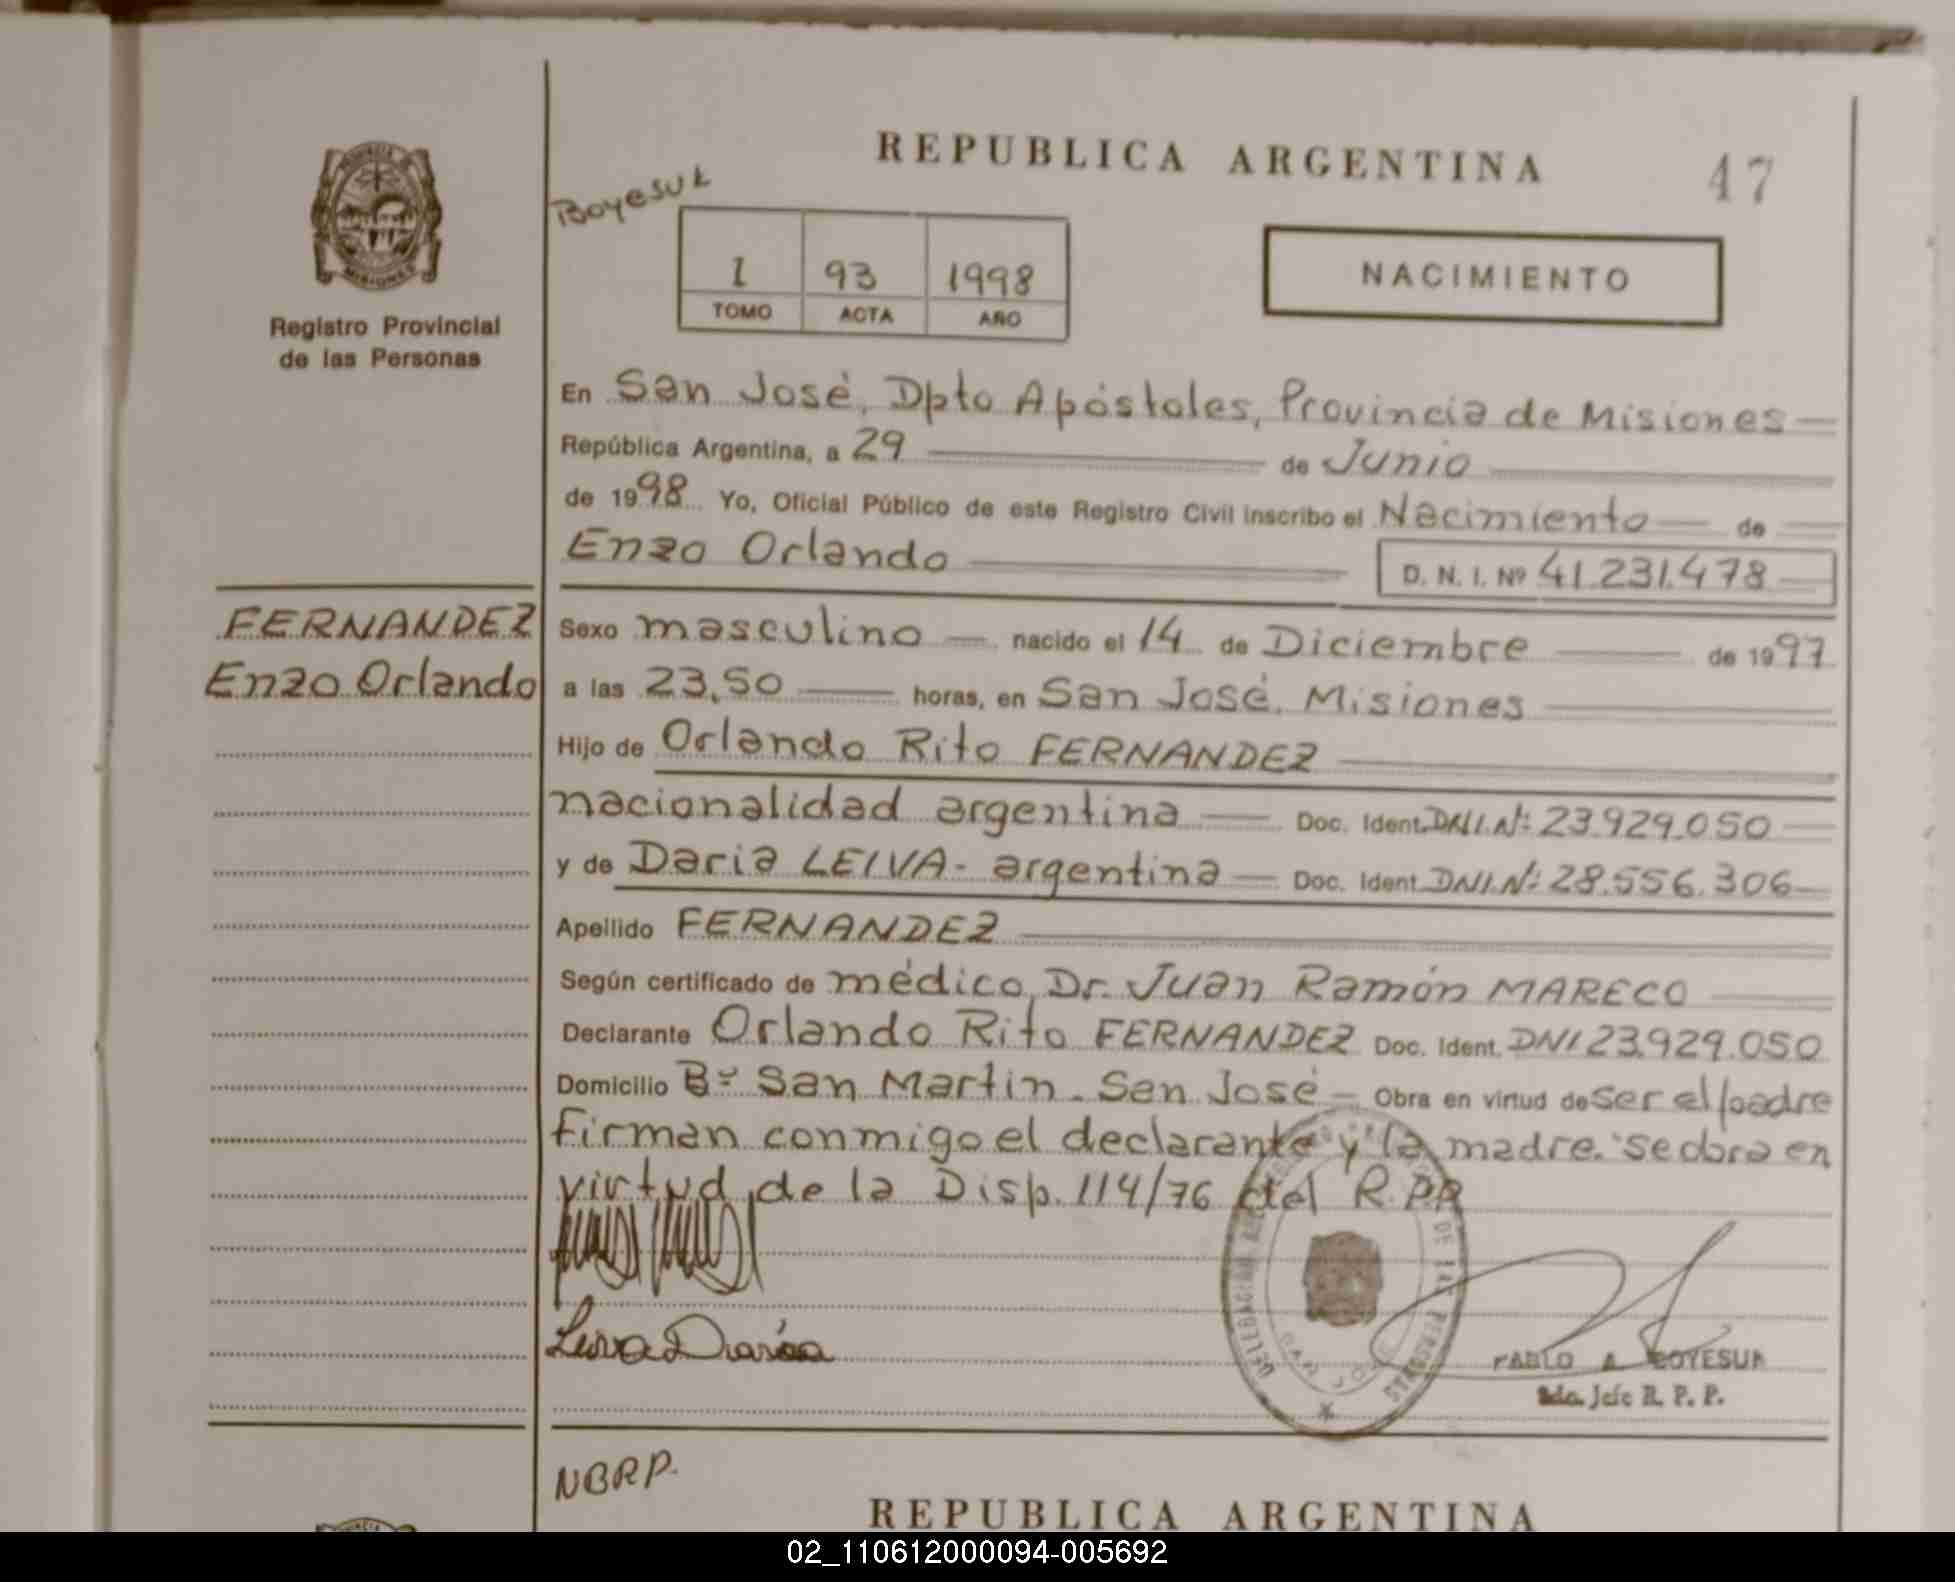 REPUBLICA ARGENTINA
47
Boyesuk
NACIMIENTO
1 93 1998
TOMO ACTA AÑO
PROVINCIA DE
MISIONES
Registro Provincial
de las Personas
En San José, Dpto Apóstoles, Provincia de Misiones
República Argentina, a 29 de Junio
de 1998 Yo, Oficial Público de este Registro Civil inscribo el Nacimiento de
Enzo Orlando D. N. I. Nº 41.231.478
FERNANDEZ
Enzo Orlando
Sexo masculino nacido el 14 de Diciembre de 1997
a las 23,50 horas, en San José, Misiones
Hijo de Orlando Rito FERNANDEZ
nacionalidad argentina Doc. Ident. DNI.Nº: 23.929.050
y de Daria LEIVA - argentina Doc. Ident. DNI.Nº: 28.556.306
Apellido FERNANDEZ
Según certificado de médico, Dr. Juan Ramón MARECO
Declarante Orlando Rito FERNANDEZ Doc. Ident. DNI 23.929.050
Domicilio Bº San Martin - San José - Obra en virtud de ser el padre
firman conmigo el declarante y la madre. Se obra en
virtud de la Disp. 114/76 del R.P.P
Leiva Daria
DE LAS PERSONAS
SAN JOSE
PABLO A. BOYESUK
2do. Jefe R. P. P.
NBRP.
REPUBLICA ARGENTINA
02_110612000094-005692